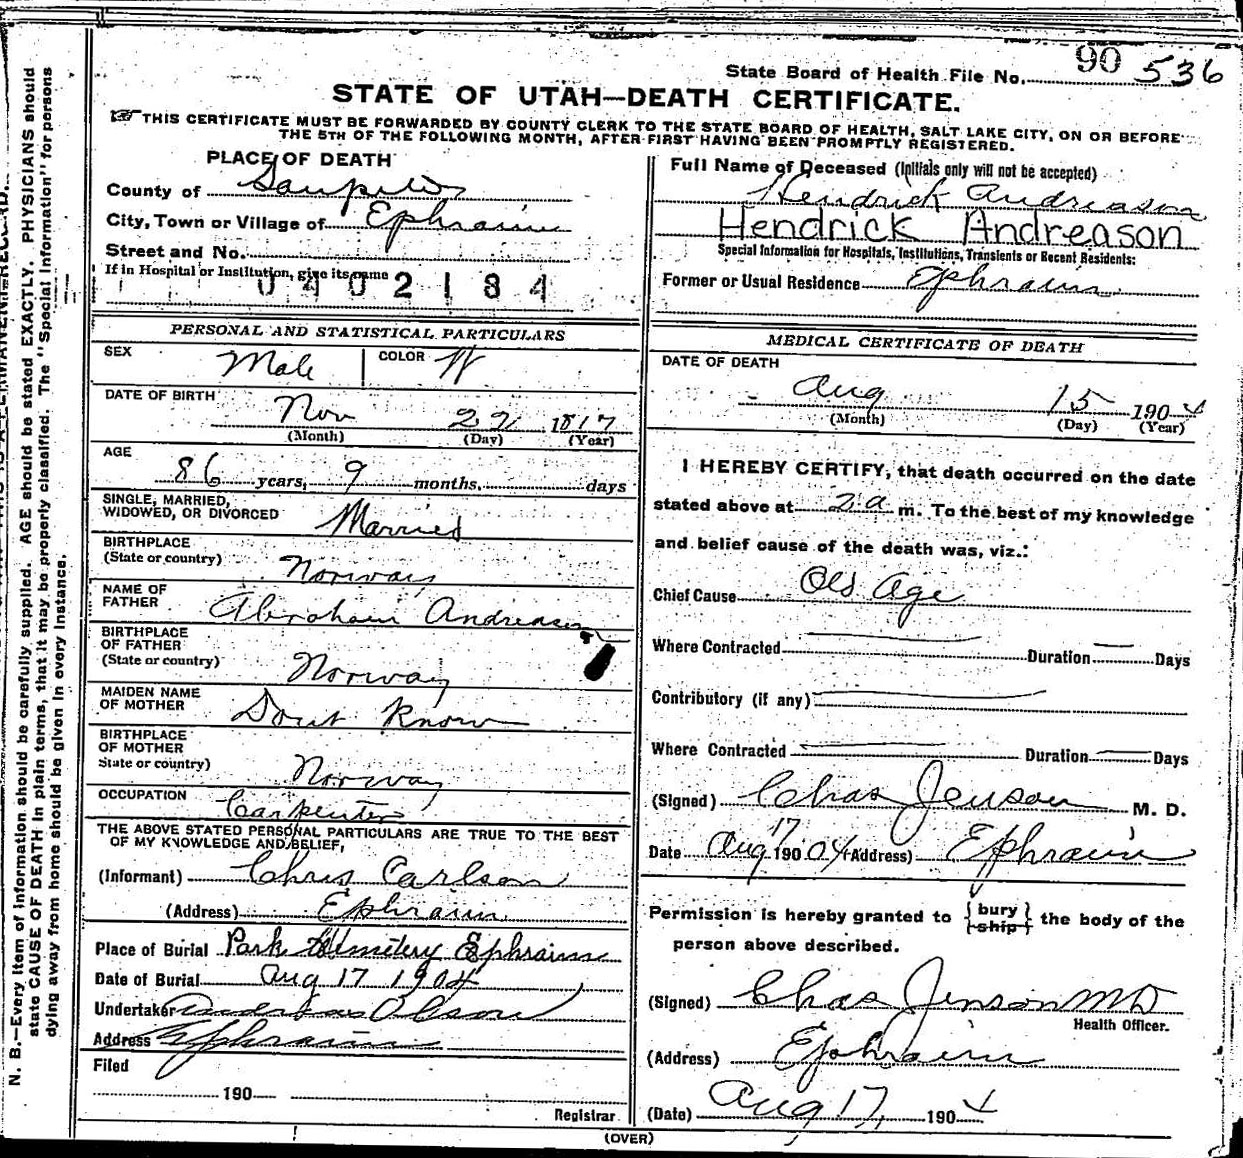 State Board of Health File No. 90 536
STATE OF UTAH—DEATH CERTIFICATE.
☞ THIS CERTIFICATE MUST BE FORWARDED BY COUNTY CLERK TO THE STATE BOARD OF HEALTH, SALT LAKE CITY, ON OR BEFORE
THE 5TH OF THE FOLLOWING MONTH, AFTER FIRST HAVING BEEN PROMPTLY REGISTERED.
PLACE OF DEATH
County of Sanpete
City, Town or Village of Ephraim
Street and No.
If in Hospital or Institution, give its name
0402184
PERSONAL AND STATISTICAL PARTICULARS
SEX Male COLOR W
DATE OF BIRTH
Nov 22 1817
(Month) (Day) (Year)
AGE
86 years, 9 months, days
SINGLE, MARRIED,
WIDOWED, OR DIVORCED Married
BIRTHPLACE
(State or country) Norway
NAME OF
FATHER Abraham Andreasen
BIRTHPLACE
OF FATHER
(State or country) Norway
MAIDEN NAME
OF MOTHER Dont Know
BIRTHPLACE
OF MOTHER
State or country) Norway
OCCUPATION Carpenter
THE ABOVE STATED PERSONAL PARTICULARS ARE TRUE TO THE BEST
OF MY KNOWLEDGE AND BELIEF,
(Informant) Chris Carlson
(Address) Ephraim
Place of Burial Park Cemetery Ephraim
Date of Burial Aug 17 1904
Undertaker Olson
Address Ephraim
Filed
190
Registrar
Full Name of Deceased (Initials only will not be accepted)
Hendrick Andreason
Hendrick Andreason
Special Information for Hospitals, Institutions, Transients or Recent Residents:
Former or Usual Residence Ephraim
MEDICAL CERTIFICATE OF DEATH
DATE OF DEATH
Aug 15 1904
(Month) (Day) (Year)
I HEREBY CERTIFY, that death occurred on the date
stated above at 2 a m. To the best of my knowledge
and belief cause of the death was, viz.:
Chief Cause Old Age
Where Contracted Duration Days
Contributory (if any)
Where Contracted Duration Days
(Signed) Chas Jenson M. D.
Date Aug 17 1904 (Address) Ephraim
Permission is hereby granted to {bury ship} the body of the
person above described.
(Signed) Chas Jenson MD
Health Officer.
(Address) Ephraim
(Date) Aug 17, 1904
(OVER)
N. B.—Every item of information should be carefully supplied. AGE should be stated EXACTLY. PHYSICIANS should
state CAUSE OF DEATH in plain terms, that it may be properly classified. The "Special Information" for persons
dying away from home should be given in every instance.